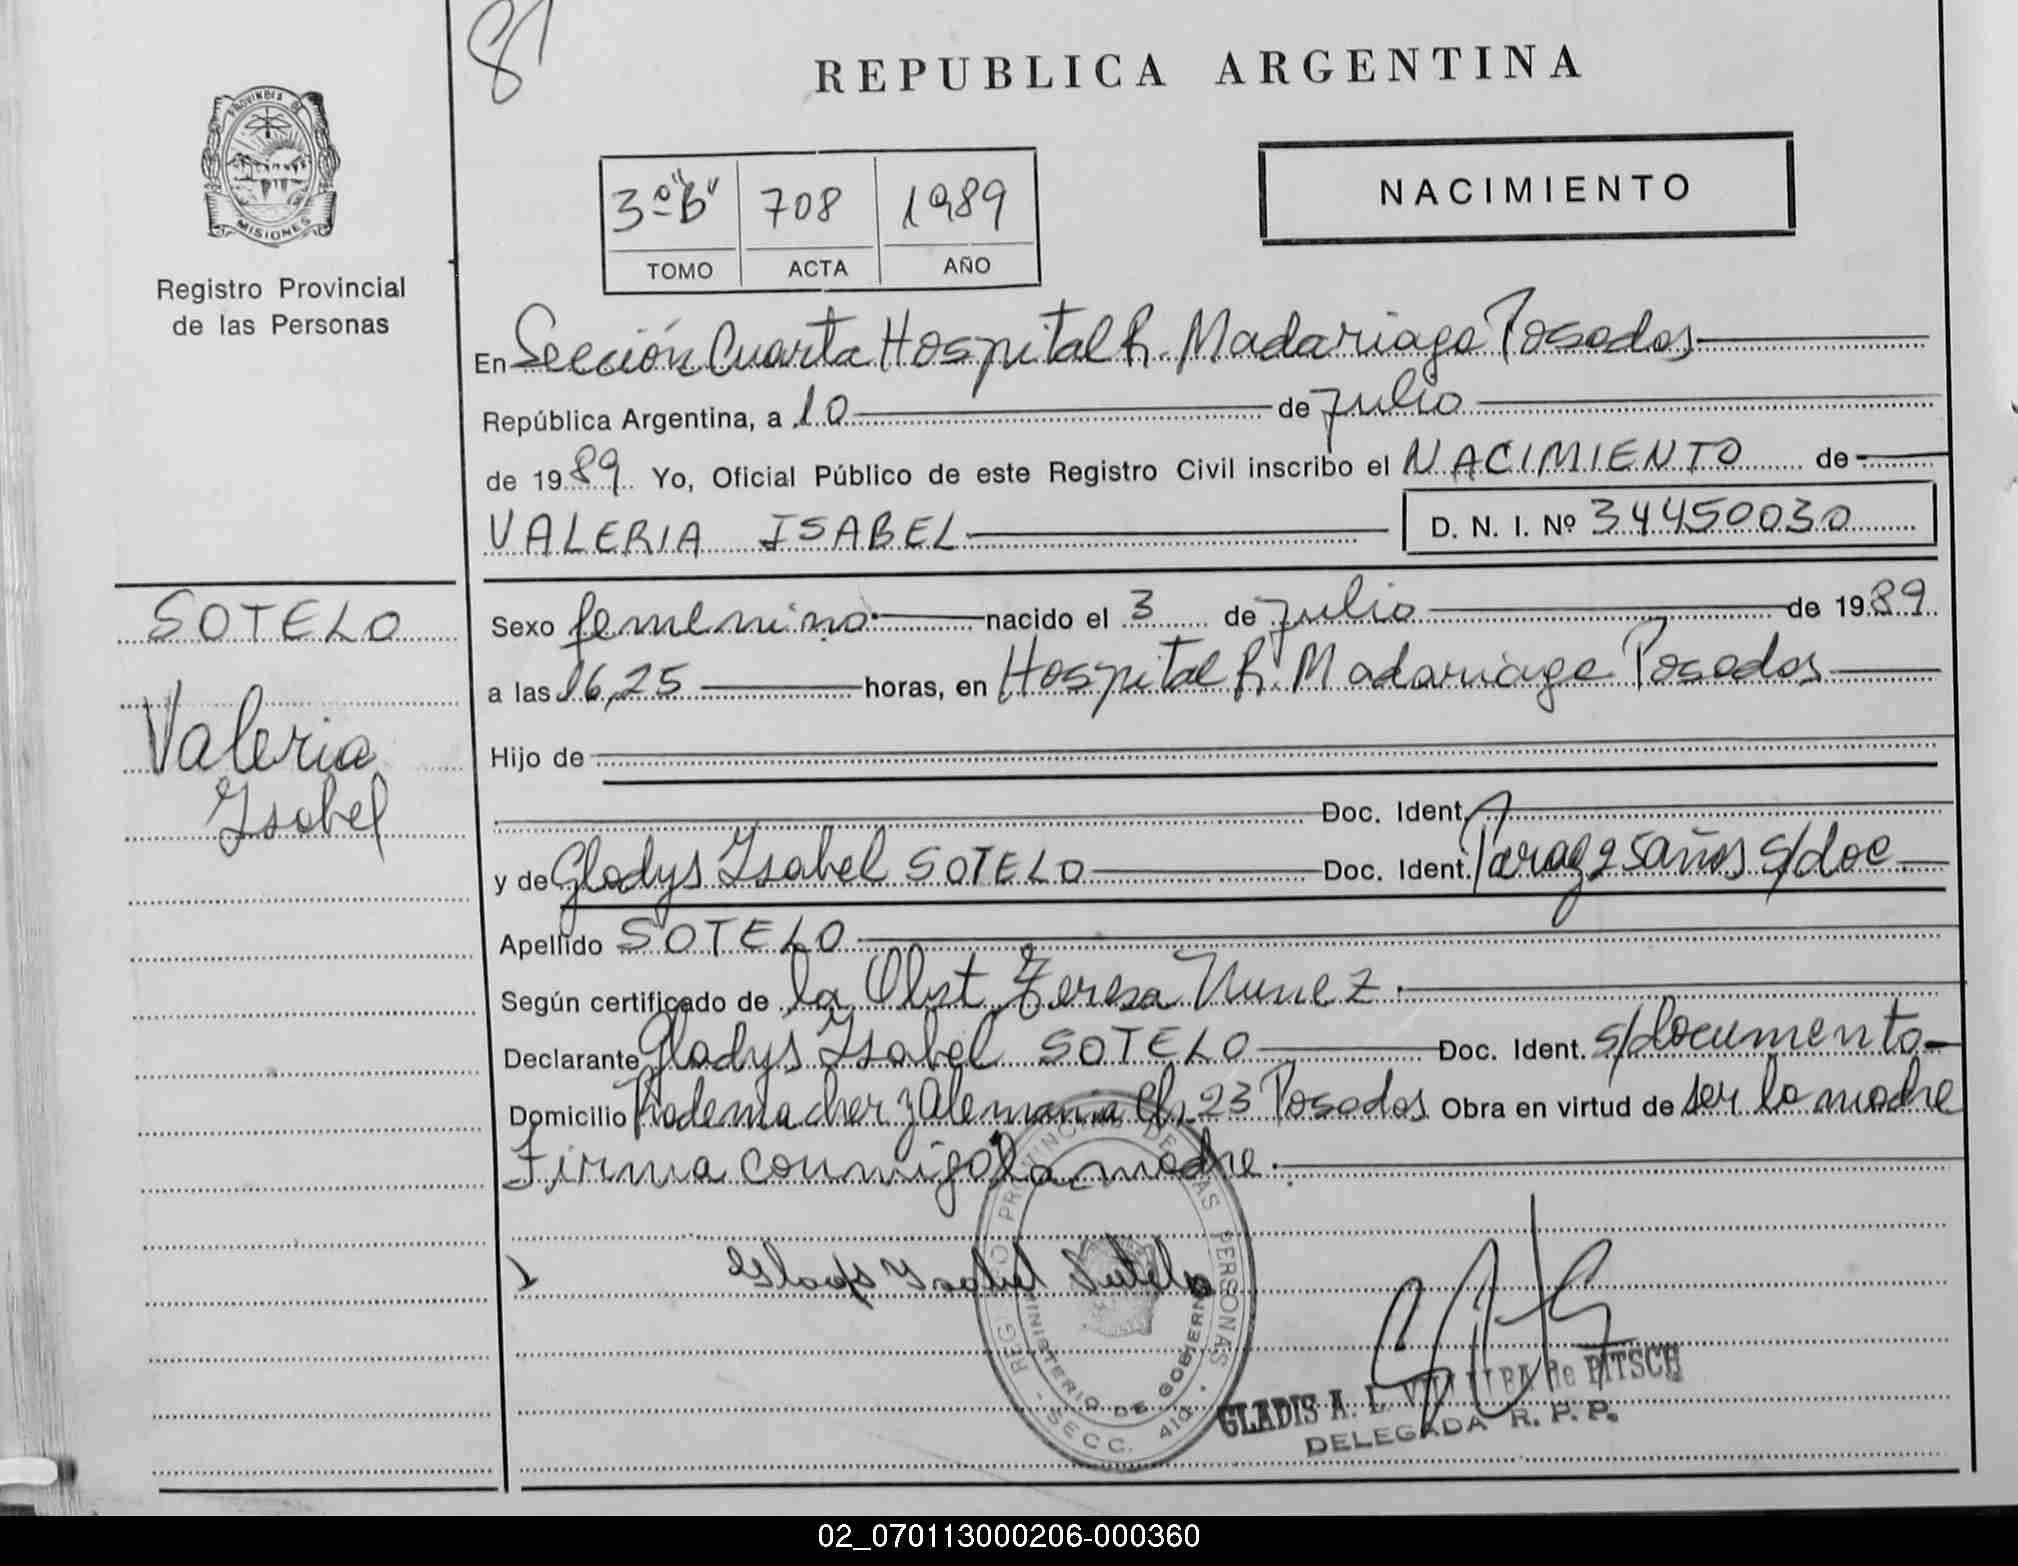 81
REPUBLICA ARGENTINA
PROVINCIA DE
MISIONES
Registro Provincial
de las Personas
3º "B" 708 1989
TOMO ACTA AÑO
NACIMIENTO
En Sección Cuarta Hospital R. Madariaga Posadas
República Argentina, a 10 de Julio
de 1989 Yo, Oficial Público de este Registro Civil inscribo el NACIMIENTO de
VALERIA ISABEL
D. N. I. Nº 34450030
SOTELO
Valeria
Isabel
Sexo femenino nacido el 3 de Julio de 1989
a las 16,25 horas, en Hospital R. Madariaga Posadas
Hijo de
Doc. Ident.
y de Gladys Isabel SOTELO Doc. Ident. Parag 25 años s/doc
Apellido SOTELO
Según certificado de la Obst Teresa Nunez.
Declarante Gladys Isabel SOTELO Doc. Ident. s/documento
Domicilio Rademacher y Alemania Ch. 23 Posadas Obra en virtud de ser la madre
Firma conmigo la madre.
Gladys Isabel Sotelo
REGISTRO PROVINCIAL DE LAS PERSONAS
MINISTERIO DE GOBIERNO
SECC. 4ta.
GLADIS A. L. de PITSCH
DELEGADA R. P. P.
02_070113000206-000360